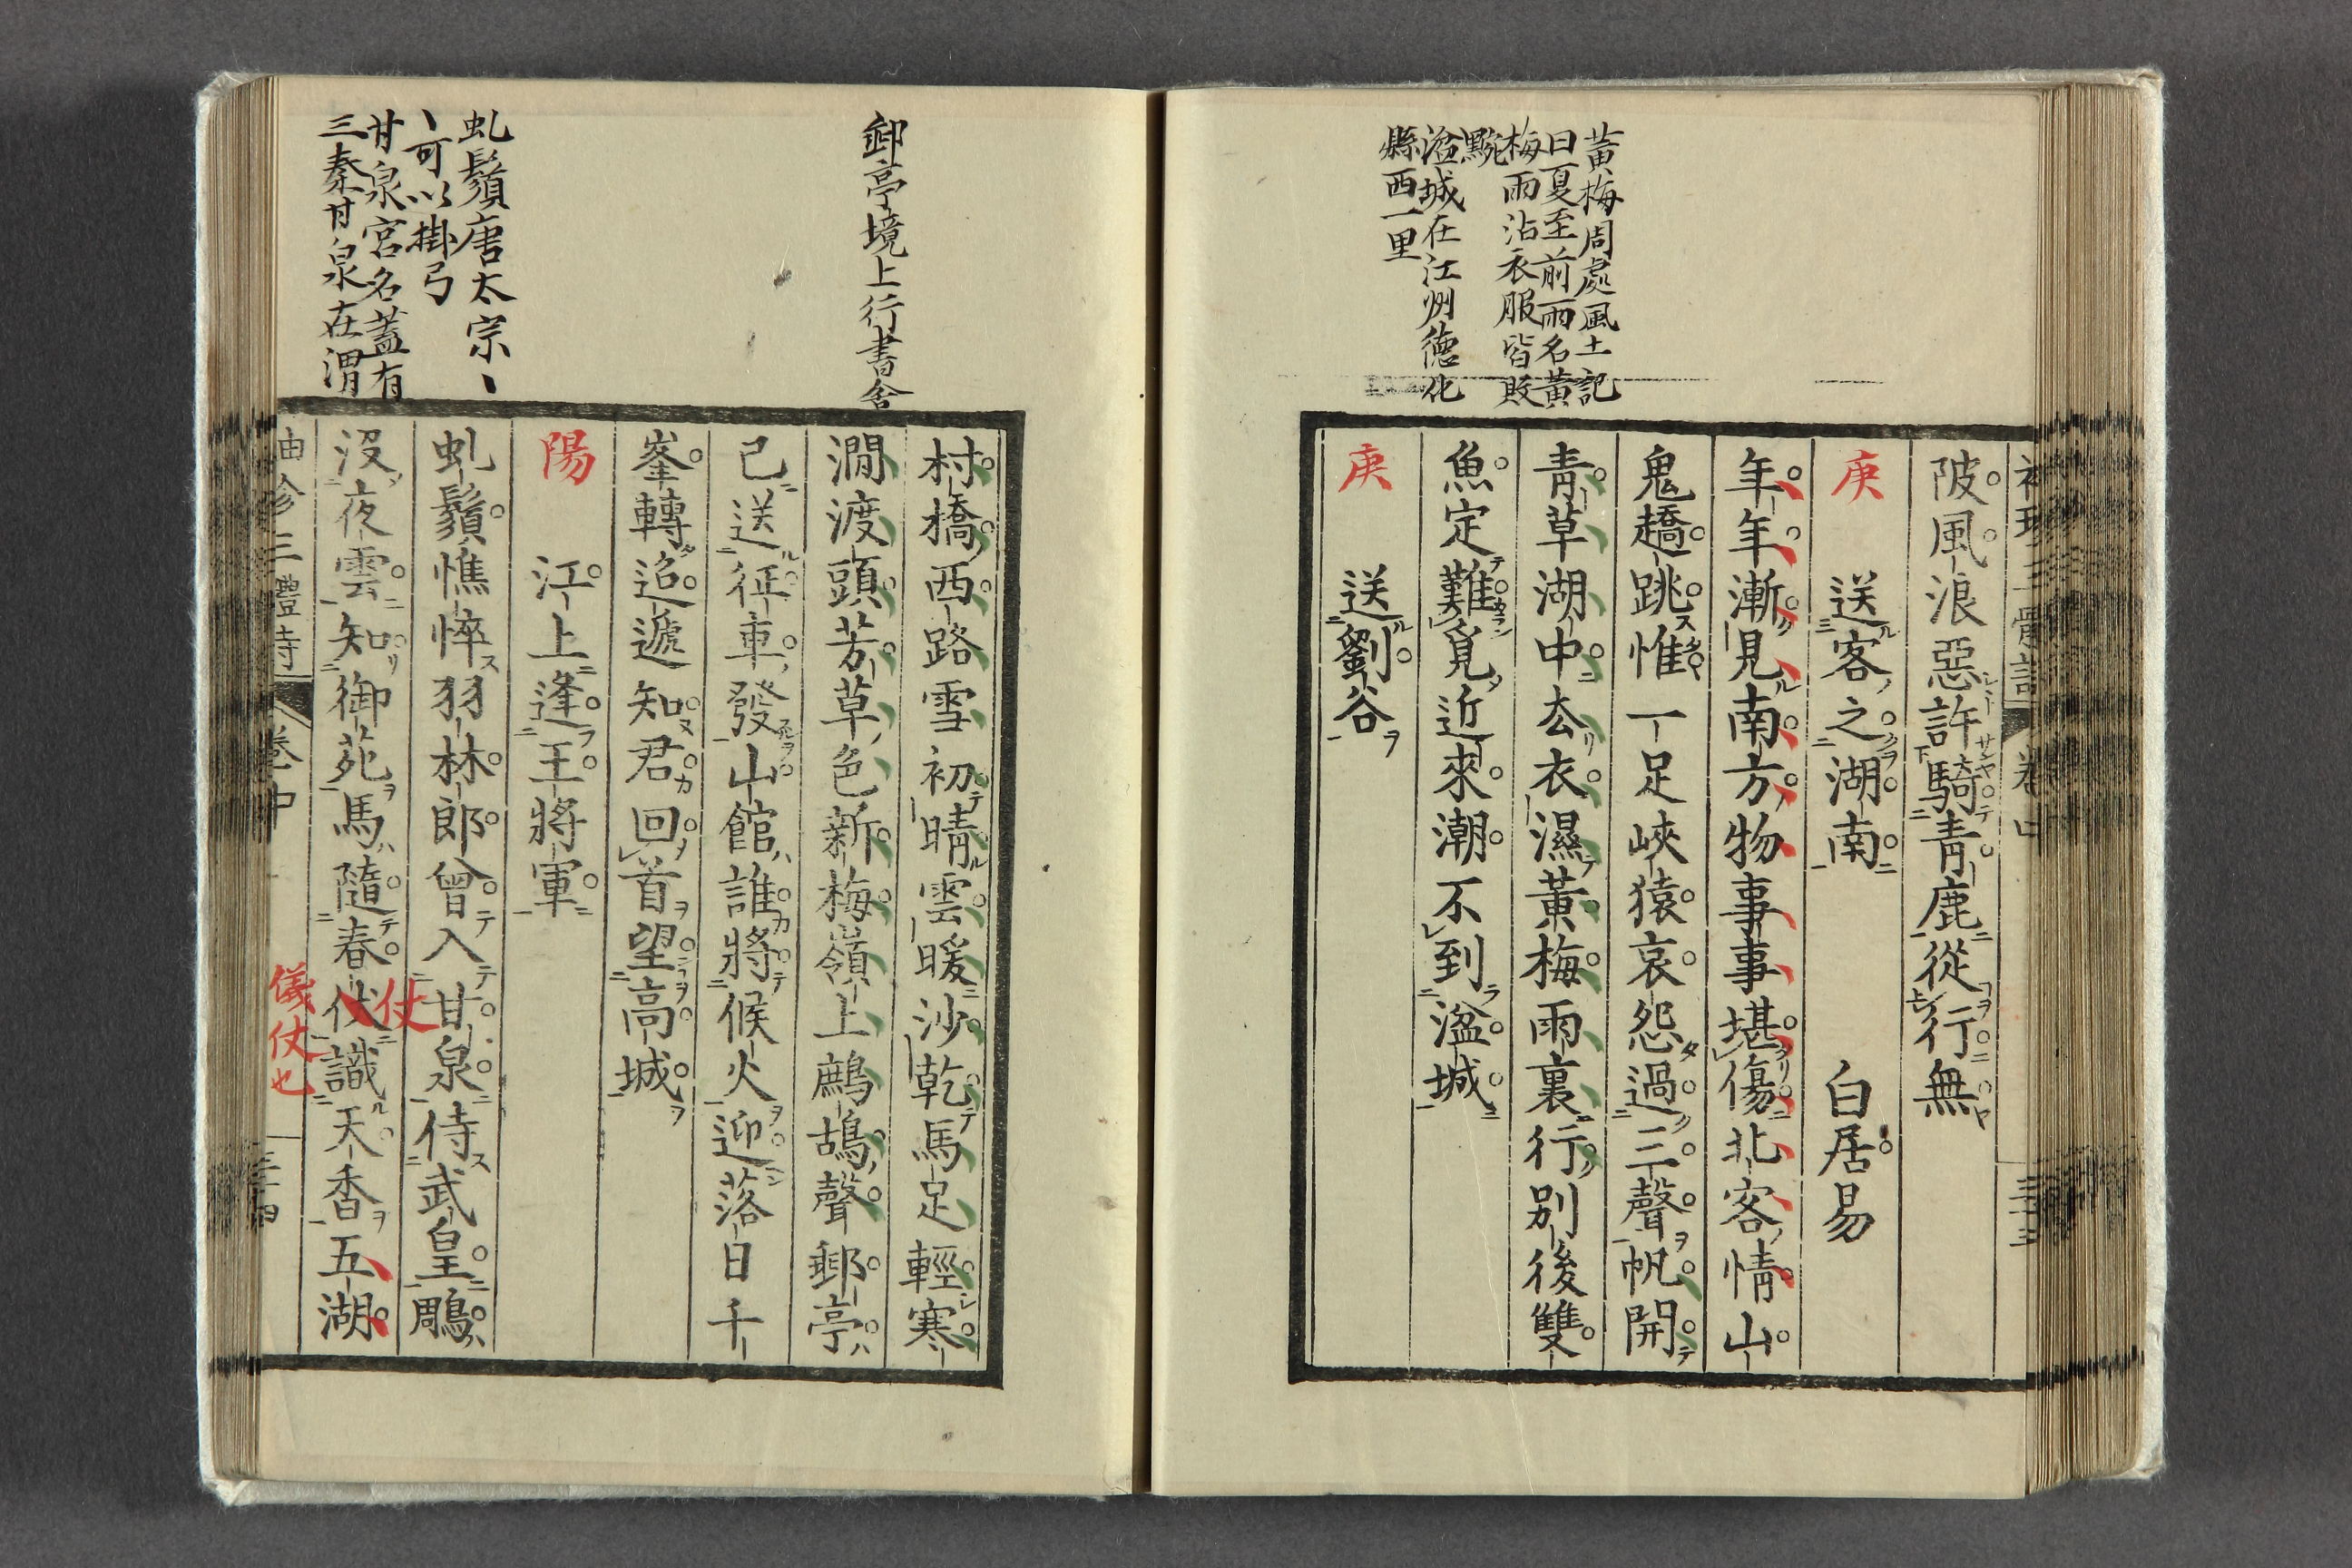 黃梅周處風土記
曰夏至前雨名黃
梅雨沾衣服皆敗
黦
湓城在江州德化
縣西一里
陂風浪惡許騎青鹿從行無
庚
送客之湖南 白居易
年年漸見南方物事事堪傷北客情山
鬼趫跳惟一足峽猿哀怨過三聲帆開
青草湖中去衣濕黃梅雨裏行别後雙
魚定難覓近來潮不到湓城
庚
送劉谷
卷中
三十三
郵亭境上行書舍
村橋西路雪初晴雲暖沙乾馬足輕寒
澗渡頭芳草色新梅嶺上鷓鴣聲郵亭
已送征車發山館誰將候火迎落日千
峯轉迢遞知君回首望高城
陽
江上逢王將軍
虬鬚唐太宗丶
丶可以掛弓
甘泉宮名蓋有
三秦甘泉在渭
虬鬚憔悴羽林郎曾入甘泉侍武皇鵰
沒夜雲知御苑馬隨春伏識天香五湖
仗
儀仗也
袖珍三體詩
卷中
三十四